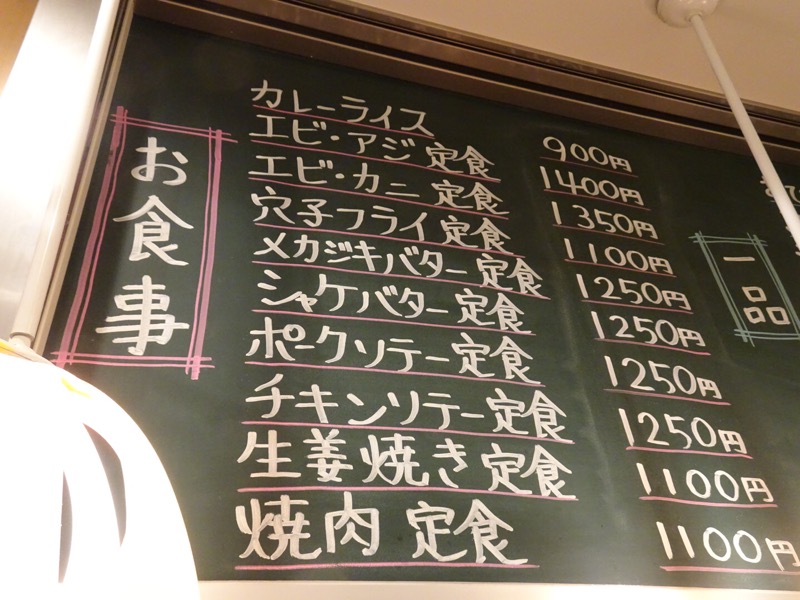 お食事
カレーライス 900円
エビ・アジ定食 1400円
エビ・カニ定食 1350円
穴子フライ定食 1100円
メカジキバター定食 1250円
シャケバター定食 1250円
ポークソテー定食 1250円
チキンソテー定食 1250円
生姜焼き定食 1100円
焼肉定食 1100円
一品